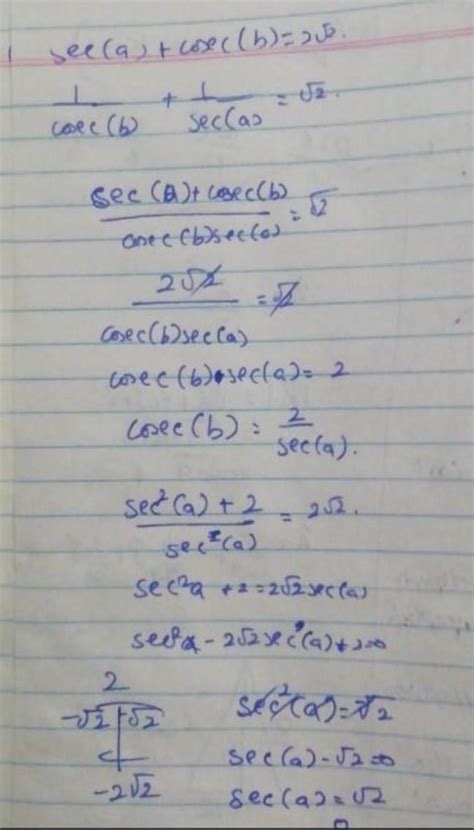 1 sec(a) + cosec(b) = 2√2.
1/cosec(b) + 1/sec(a) = √2.
sec(a) + cosec(b)/cosec(b)sec(a) = √2
2√2/cosec(b)sec(a) = √2
cosec(b)•sec(a) = 2
cosec(b) = 2/sec(a).
sec²(a) + 2/sec(a) = 2√2.
sec²a + 2 = 2√2 sec(a)
sec²a - 2√2 sec(a) + 2 = 0
2
-√2 | -√2
-2√2
sec²(a) = √2
sec(a) - √2 = 0
sec(a) = √2